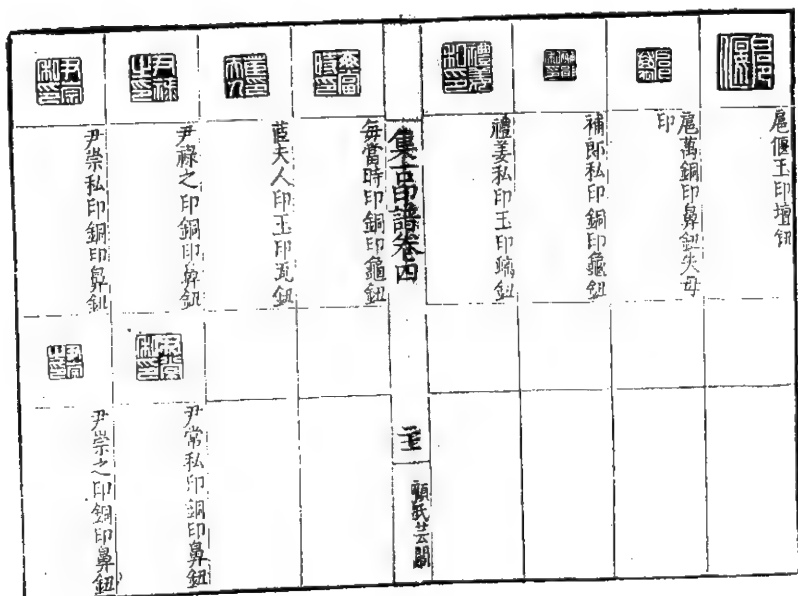 扈偃玉印壇鈕
扈萬銅印鼻鈕失母
印
補郎私印銅印龜鈕
禮姜私印玉印螭鈕
集古印譜卷四
二十三
顧氏芸閣
每當時印銅印龜鈕
茞夫人印玉印瓦鈕
尹祿之印銅印鼻鈕
尹常私印銅印鼻鈕
尹崇私印銅印鼻鈕
尹崇之印銅印鼻鈕